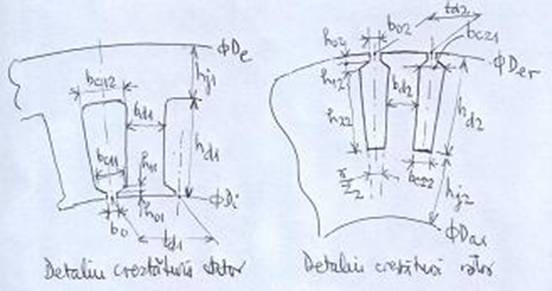 ΦDe
hj1
bc12
bd1
hd1
bc11
h11
h01
ΦDi
b0
td1
Detaliu crestătură stator
td2
b02
bc21
h02
ΦDer
h12
bd2
h22
hd2
bc22
hj2
ΦDai
Detaliu crestătură rotor